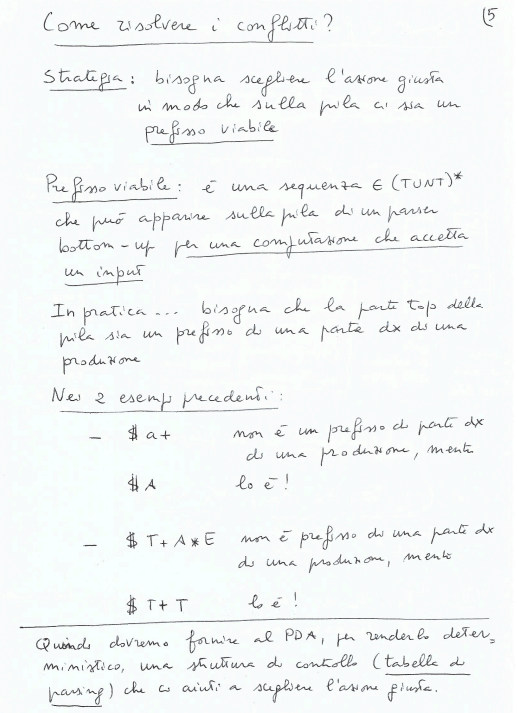 (5
Come risolvere i conflitti?
Strategia: bisogna scegliere l'azione giusta
in modo che sulla pila ci sia un
prefisso viabile
Prefisso viabile: è una sequenza ∈ (TUNT)*
che può apparire sulla pila di un parser
bottom-up per una computazione che accetta
un input
In pratica... bisogna che la parte top della
pila sia un prefisso di una parte dx di una
produzione
Nei 2 esempi precedenti:
– $ a+ non è un prefisso di parte dx
di una produzione, mentre
$ A lo è!
– $ T+A*E non è prefisso di una parte dx
di una produzione, mentre
$ T+T lo è!
Quindi dovremo fornire al PDA, per renderlo deter=
ministico, una struttura di controllo (tabella di
parsing) che ci aiuti a scegliere l'azione giusta.